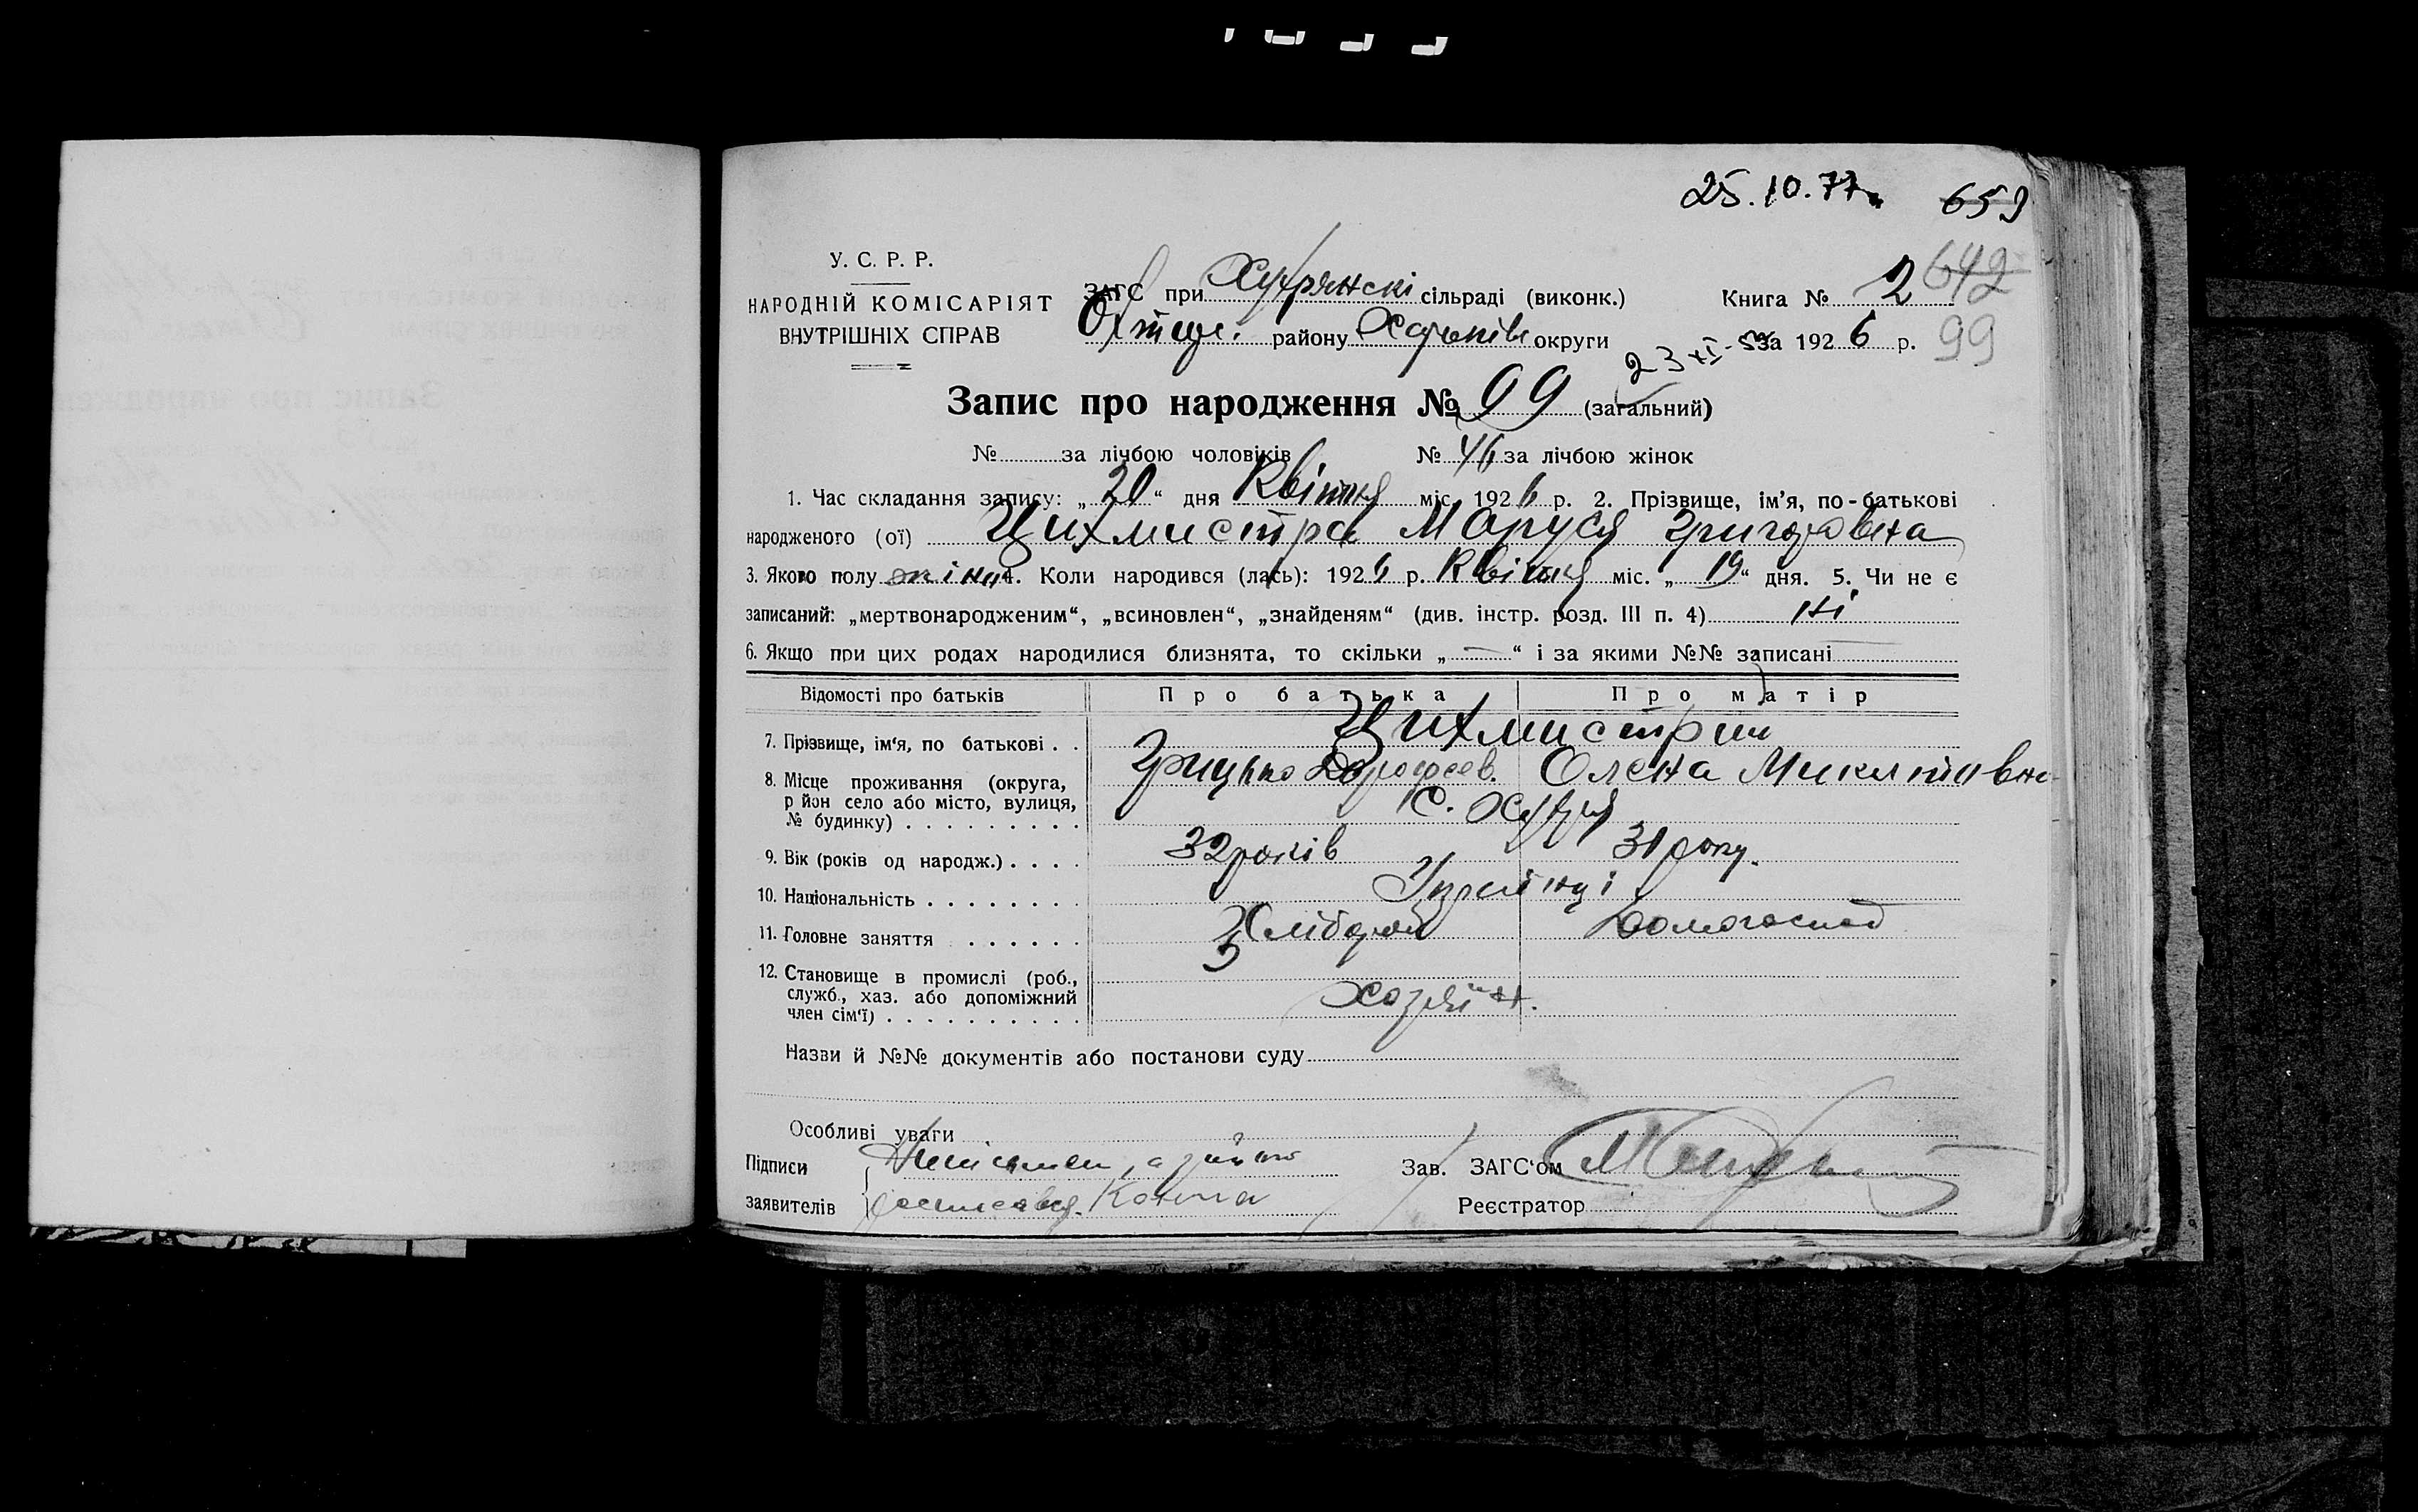 25.10.77
659
У. С. Р. Р.
НАРОДНІЙ КОМІСАРІЯТ
ВНУТРІШНІХ СПРАВ
ЗАГС при Хухрянскі сільраді (виконк.)
Книга № 2
642
Охтир. району Харьків округи
23 XI-53
за 1926 р.
99
Запис про народження № 99 (загальний)
№ за лічбою чоловіків № 46 за лічбою жінок
1. Час складання запису: „20“ дня Квітня міс. 1926 р. 2. Прізвище, ім’я, по-батькові
народженого (ої) Цихмистра Маруся Григоровна
3. Якого полу жіноч. 4. Коли народився (лась): 1926 р. Квітня міс. „19“ дня. 5. Чи не є
записаний: „мертвонародженим“, „всиновлен“, „знайденям“ (див. інстр. розд. III п. 4) ні
6. Якщо при цих родах народилися близнята, то скільки „—“ і за якими №№ записані
Відомості про батьків Про батька Про матір
7. Прізвище, ім‘я, по батькові . . Цихмистри
Грицько Дорофеев. Олена Микитовна
8. Місце проживання (округа,
р йон село або місто, вулиця,
№ будинку) . . . . . . . . . С. Хухря
9. Вік (років од народж.) . . . . 32 років 31 року.
10. Національність . . . . . . . . Українці
11. Головне заняття . . . . . . Хлібороб Домогоспод
5
12. Становище в промислі (роб.,
служб., хаз. або допоміжний
член сім‘ї) . . . . . . . . . . Хозяїн.
Назви й №№ документів або постанови суду
Особливі уваги
Підписи
заявителів
Зав. ЗАГС‘ом
Реєстратор